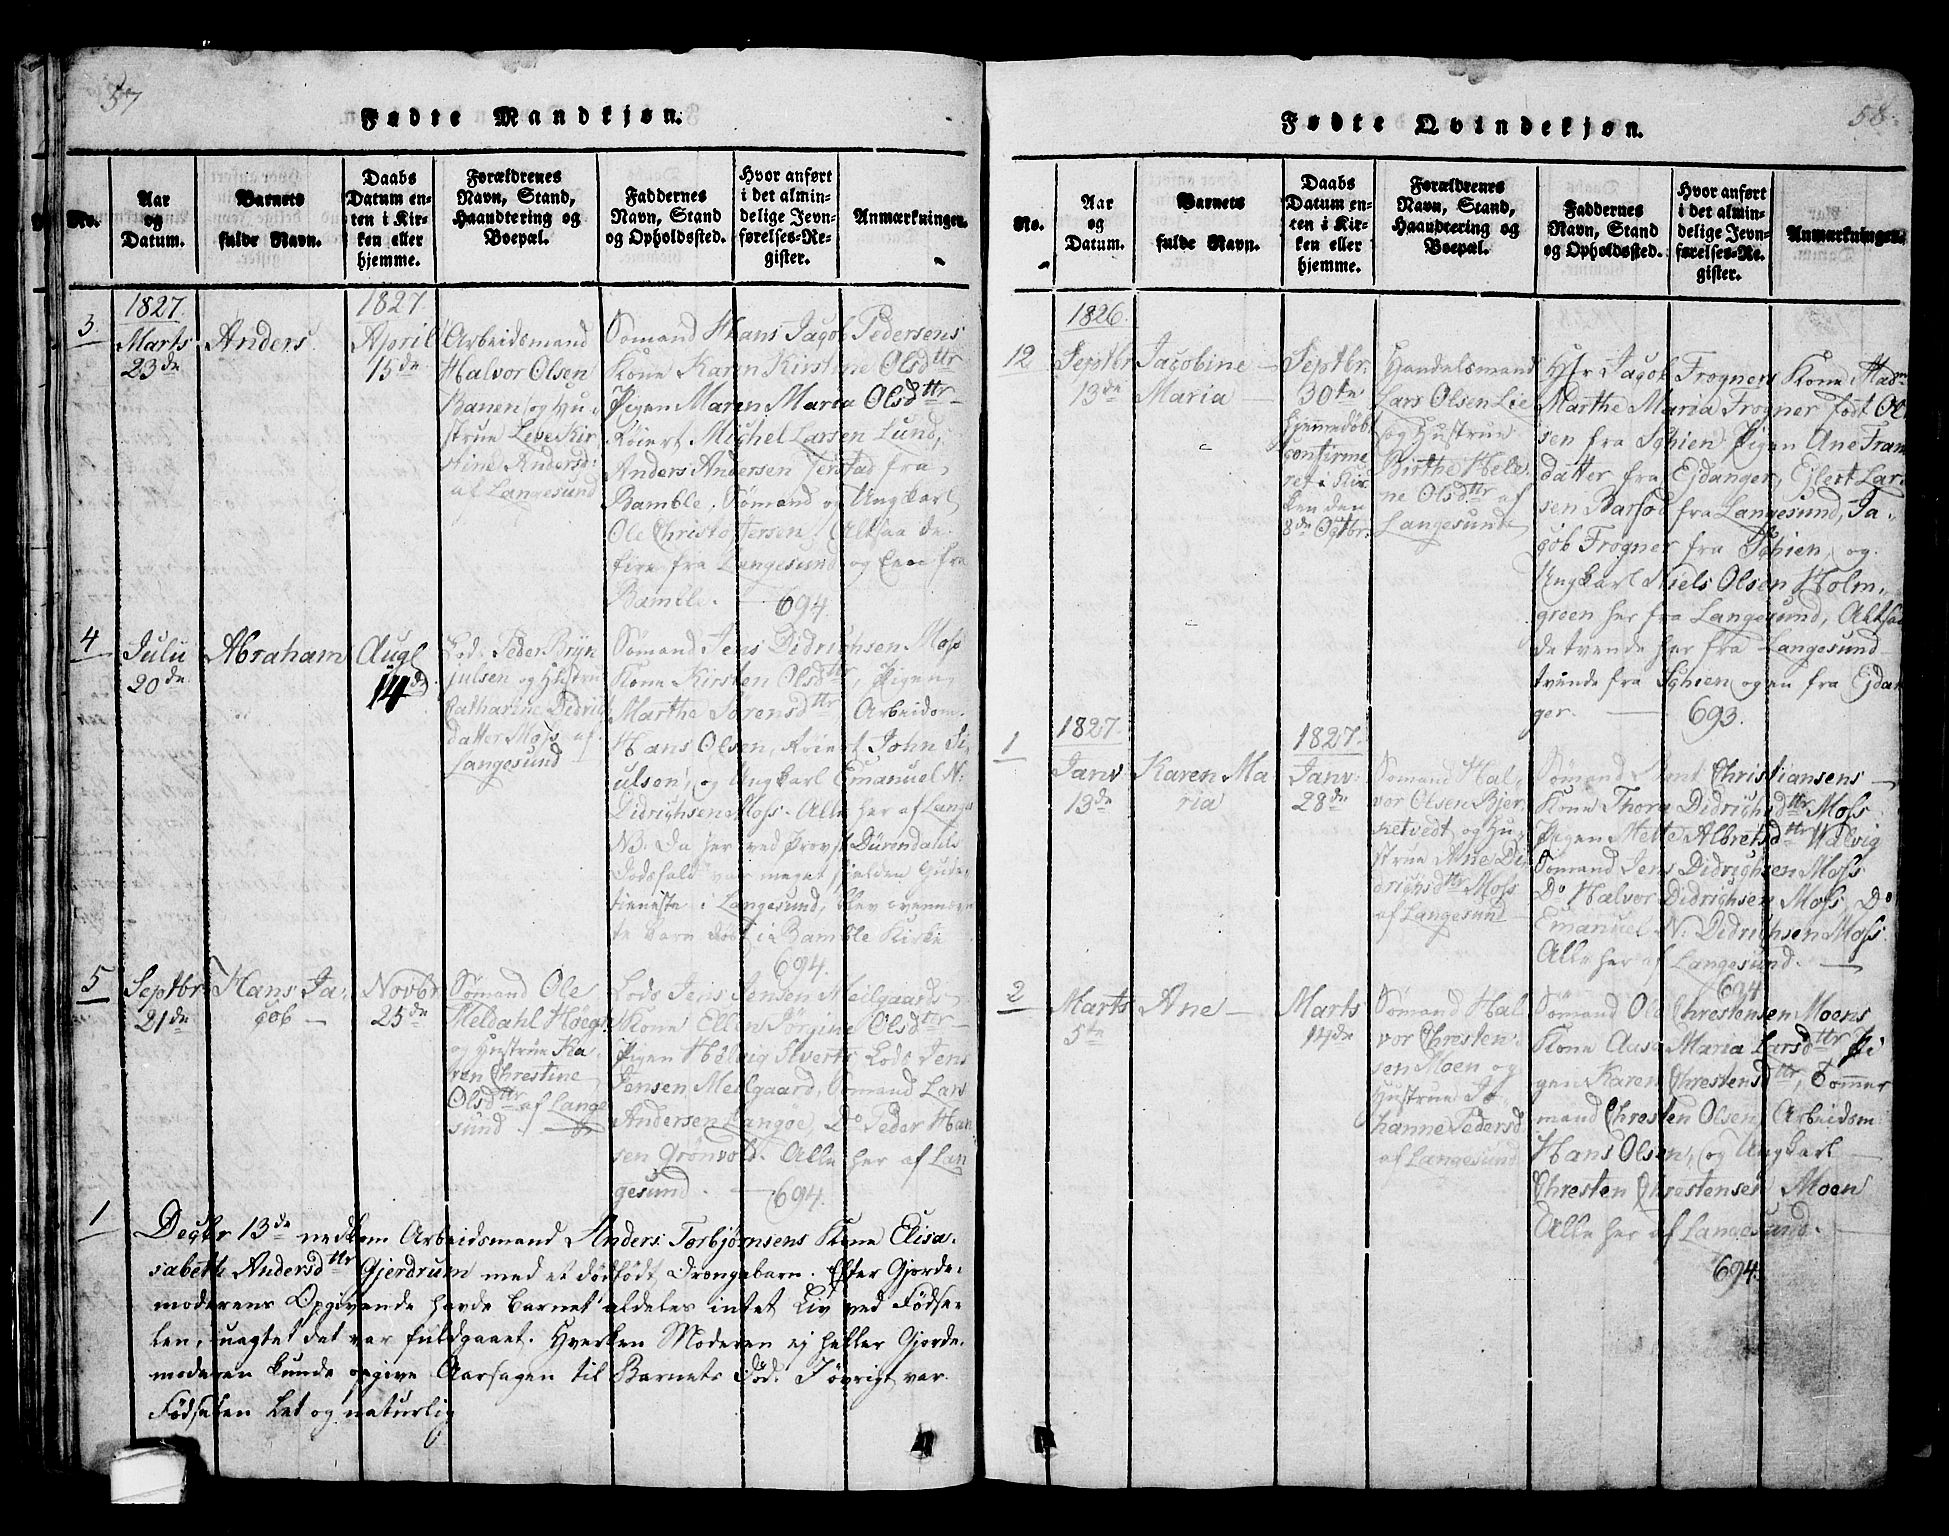 57
Fødte Mandkjøn.
No.
Aar
og
Datum.
Barnets
fulde Navn.
Daabs
Datum en-
ten i Kir-
ken eller
hjemme.
Forældrenes
Navn, Stand,
Haandtering og
Boepæl.
Faddernes
Navn, Stand
og Opholdssted.
Hvor anført
i det almin-
delige Jevn-
førelses-Re-
gister.
Anmærkninger.
3
1827.
Marts
23de
Anders
1827.
April
15de
Arbeidsmand
Halvor Olsen
Banen og Hu-
strue Leve Kir
stine Andersd:
af Langesund
Sømand Hans Jacob Pedersens
Kone Karen Kirstine Olsdttr
Pigen Maren Maria Olsdttr
Michel Larsen Lund,
Anders Andersen fra
Bamble. Sømand og Ungkarl
Ole Christoffersen / Altsaa de
fire fra Langesund og Een fra
Bamble. 694
4
Julii
20de
Abraham
Augl
14d
Lods Peder Bryn
julsen og Hustru
Catharine Didrich
datter Moss af
Langesund
Sømand Jens Didrichsen Moss
Kone Kirsten Olsdttr, Pigen
Marthe Sørensdttr, Arbeidsm.
Hans Olsen, John
ulsen, og Ungkarl Emanuel N:
Didrichsen Moss. Alle her af Lange
NB. Da her ved Provst Dürendahls
Dødsfald var meget sjelden Gude
tieneste i Langesund, blev ovennævn
te Barn døbt i Bamble Kirke
694.
5
Septbr
21de
Hans Ja-
cob
Novbr
25de
Sømand Ole
Meldahl Høeg
og Hustrue Ka-
ren Chrestine
Olsdttr af Lange
sund.
Lods Jens Jensen Meilgaards
Kone Ellen Jørgine Olsdttr
Pigen Helvig Siverts, Lods Jens
Jensen Meilgaard, Sømand Lars
Andersen Langøe, Do Peder Han
sen Grønvold. Alle her af Lan
gesund. 694.
1
Decbr 13de nedkom Arbeidsmand Anders Torbjørnsens Kone Elisa-
sabeth Andersdttr Gjerdrum med et dødfødt Drengebarn. Efter Gjorde-
moderens Opgivende havde Barnet aldeles intet Liv ved Fødse-
len, uagtet det var fuldgaaet. Hverken Moderen ej heller Gjorde-
moderen kunde opgive Aarsagen til Barnets Død. I øvrigt var
Fødselen let og naturlig
58.
Fødte Qvindekjøn.
No.
Aar
og
Datum.
Barnets
fulde Navn.
Daabs
Datum en-
ten i Kir-
ken eller
hjemme.
Forældrenes
Navn, Stand,
Haandtering og
Boepæl.
Faddernes
Navn, Stand
og Opholdssted.
Hvor anført
i det almin-
delige Jevn-
førelses-Re-
gister.
Anmærkninger.
12
1826.
Septbr
13de
Jacobine
Maria
Septbr.
30te
hjemmedøbt
confirme
ret i Kir
ken den
8de Octbr.
Handelsmand
Lars Olsen Lie
og Hustrue
Birthe Hele
ne Olsdttr af
Langesund
Hr Jacob Frogners Kone Madm
Marthe Maria Frogner født Ol
sen fra Schien, Pigen Ane Frans
datter fra Ejdanger, Ejlert Lar
sen Barfod fra Langesund, Ja-
cob Frogner fra Schien, og
Ungkarl Niels Olsen Holm-
green her fra Langesund, Altsaa
de tvende her fra Langesund
tvende fra Schien og en fra Ejdan
ger. 693.
1
1827.
Janv
13de
Karen Ma
ria
1827.
Janv:
28de
Sømand Hal-
vor Olsen Bjer-
ketvedt og Hu-
strue Ane Di-
drichsdttr Moss
af Langesund
Sømand Christiansens
Kone Thora Didrichsdttr Moss
Pigen Mette Albretsdttr Halvig
Sømand Jens Didrichsen Moss
Do Halvor Didrichsen Moss, Do
Emanuel N: Didrichsen Moss
Alle her af Langesund.
694
2
Marts
5te
Ane
Marts
14de
Sømand Hal
vor Chresten-
sen Moen og
Hustrue Jo-
hanne Pedersd
af Langesund
Sømand Ole Chrestensen Moens
Kone Maria Larsdttr Pi
gen Karen Chrestensdttr, Tømmer
mand Chresten Olsen, Arbeidsm:
Hans Olsen, og Ungkarl
Chresten Chrestensen Moen
Alle her af Langesund.
694.